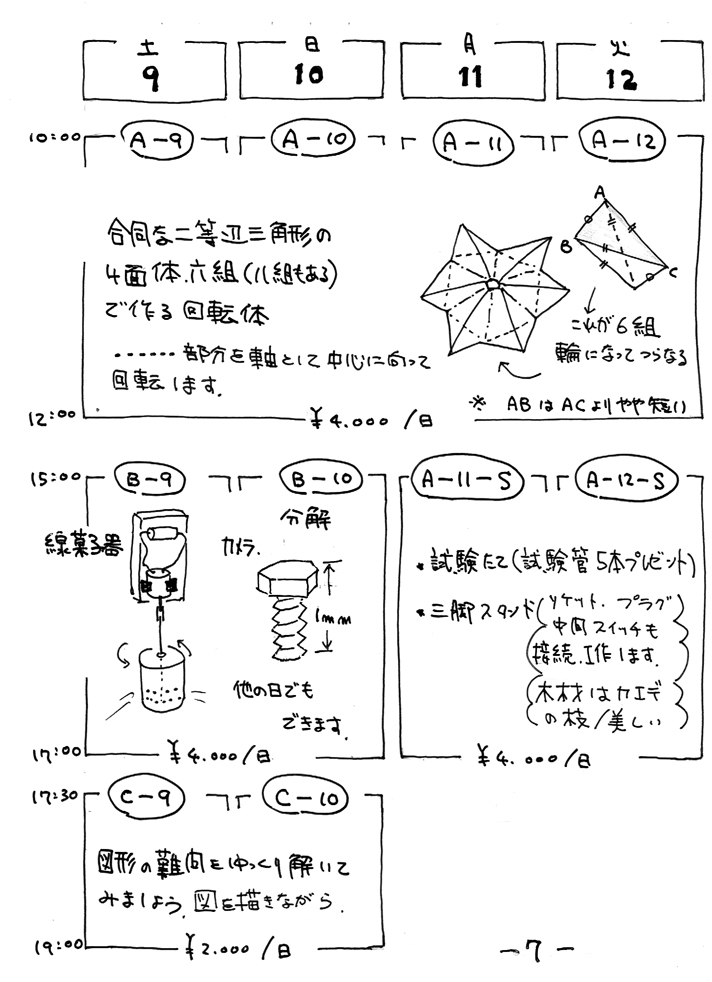 土 日 月 火
9 10 11 12
10:00 A-9 A-10 A-11 A-12
合同な二等辺三角形の
4面体.六組(八組もある)
で作る回転体
.......部分を軸として中心に向って
回転します.
A
B
C
これが6組
輪になってつらなる
※ ABはACよりやや短い
12:00 ¥4.000/日
15:00 B-9 B-10 A-11-S A-12-S
線菓子器
分解
カメラ.
1mm
他の日でも
できます.
・試験たて(試験管5本プレゼント)
・三脚スタンド(ソケット.プラグ
中間スイッチも
接続.工作します.
木材はカエデ
の枝/美しい)
17:00 ¥4.000/日 ¥4.000/日
17:30 C-9 C-10
図形の難問をゆっくり解いて
みましょう.図を描きながら.
19:00 ¥2.000/日
-7-